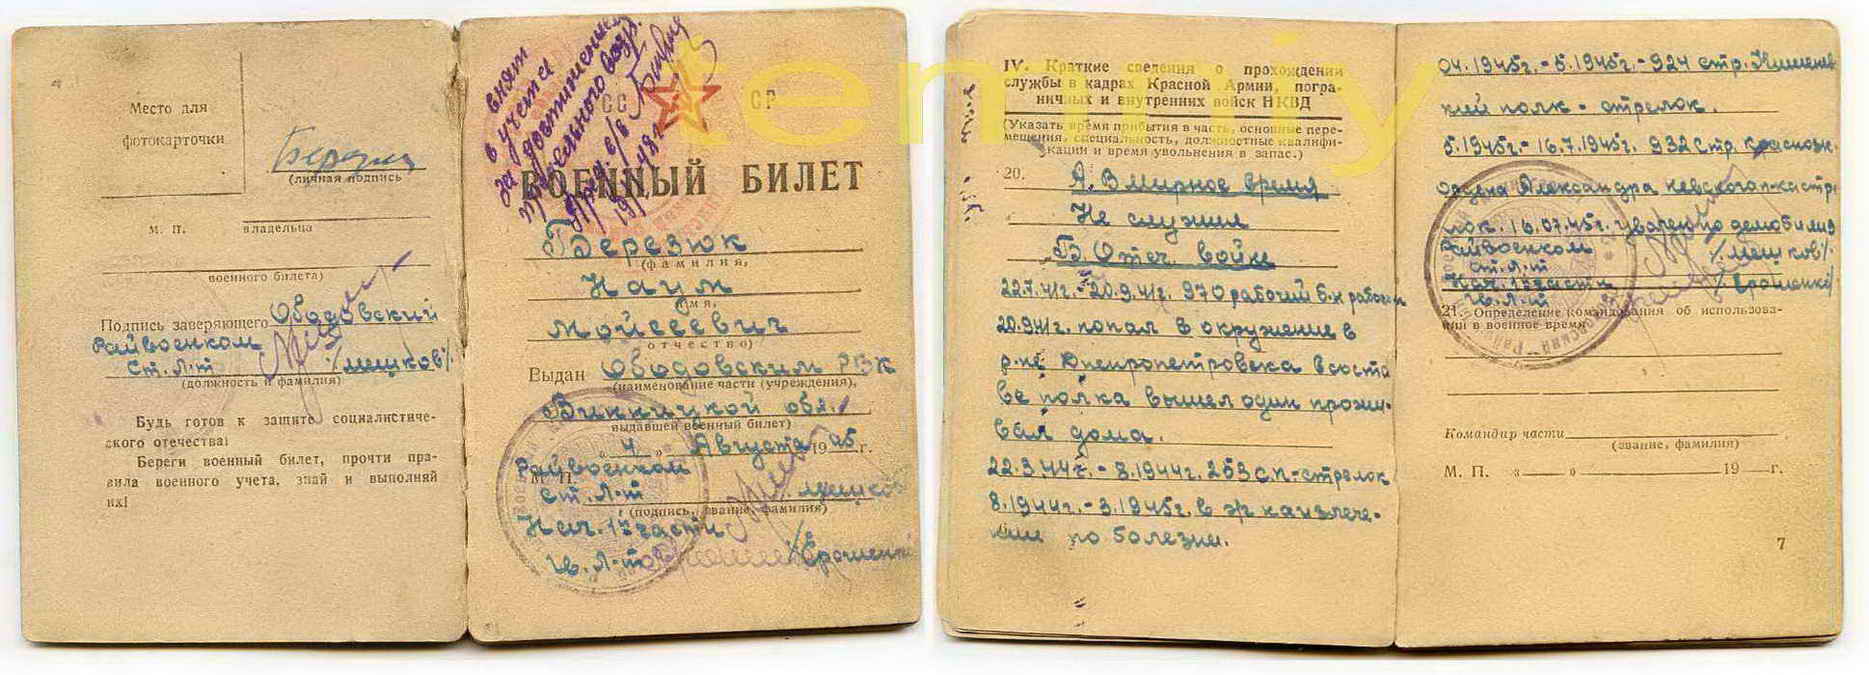 Место для
фотокарточки
Березюк
(личная подпись
м. п. владельца
военного билета)
Подпись заверяющего Ободовский
Райвоенком
Ст. Л-т /Мешков/
(должность и фамилия)
Будь готов к защите социалистиче-
ского отечества!
Береги военный билет, прочти пра-
вила военного учета, знай и выполняй
их!
снят
с учета
за достижением
предельного возр.
СС СР
ВОЕННЫЙ БИЛЕТ
Березюк
(фамилия,
Наум
имя,
Мойсеевич
отчество)
Выдан Ободовским РВК
(наименование части (учреждения),
Винницкой обл.
выдавшей военный билет)
„ 4 " Августа 1945 г.
Райвоенком
М. П.
Ст. Л-т /Мешков
(подпись, звание, фамилия)
Нач. 1й части
гв. Л-т /Ерошенко
tenniy
IV. Краткие сведения о прохождении
службы в кадрах Красной Армии, погра-
ничных и внутренних войск НКВД
(Указать время прибытия в часть, основные пере-
мещения, специальность, должностные квалифи-
кации и время увольнения в запас.)
20. А. В мирное время
Не служил
Б. Отеч. войне
22.7.41г.-20.9.41г. 970 рабочий б-н рабочий
20.9.41г. попал в окружение в
р-не Днепропетровска в соста
ве полка вышел один прожи-
вал дома.
22.3.44г. - 8.1944г. 253 с.п.-стрелок
8.1944г. - 3.1945г. в эг на излече-
нии по болезни.
04.1945г. - 5.1945г. - 924 стр. Кишинев
ский полк - стрелок.
5.1945г. - 16.7.1945г. 932 стр. краснозн.
Ордена Александра Невского п-ка стре
лок. 16.07.45г. уволен по демобилиз
Райвоенком
ст. Л-т /Мешков/
Нач. 1й части
гв. Л-т /Ерошенко/
21. Определение командования об использова-
нии в военное время
Командир части
(звание, фамилия)
М. П. « » 19 г.
7